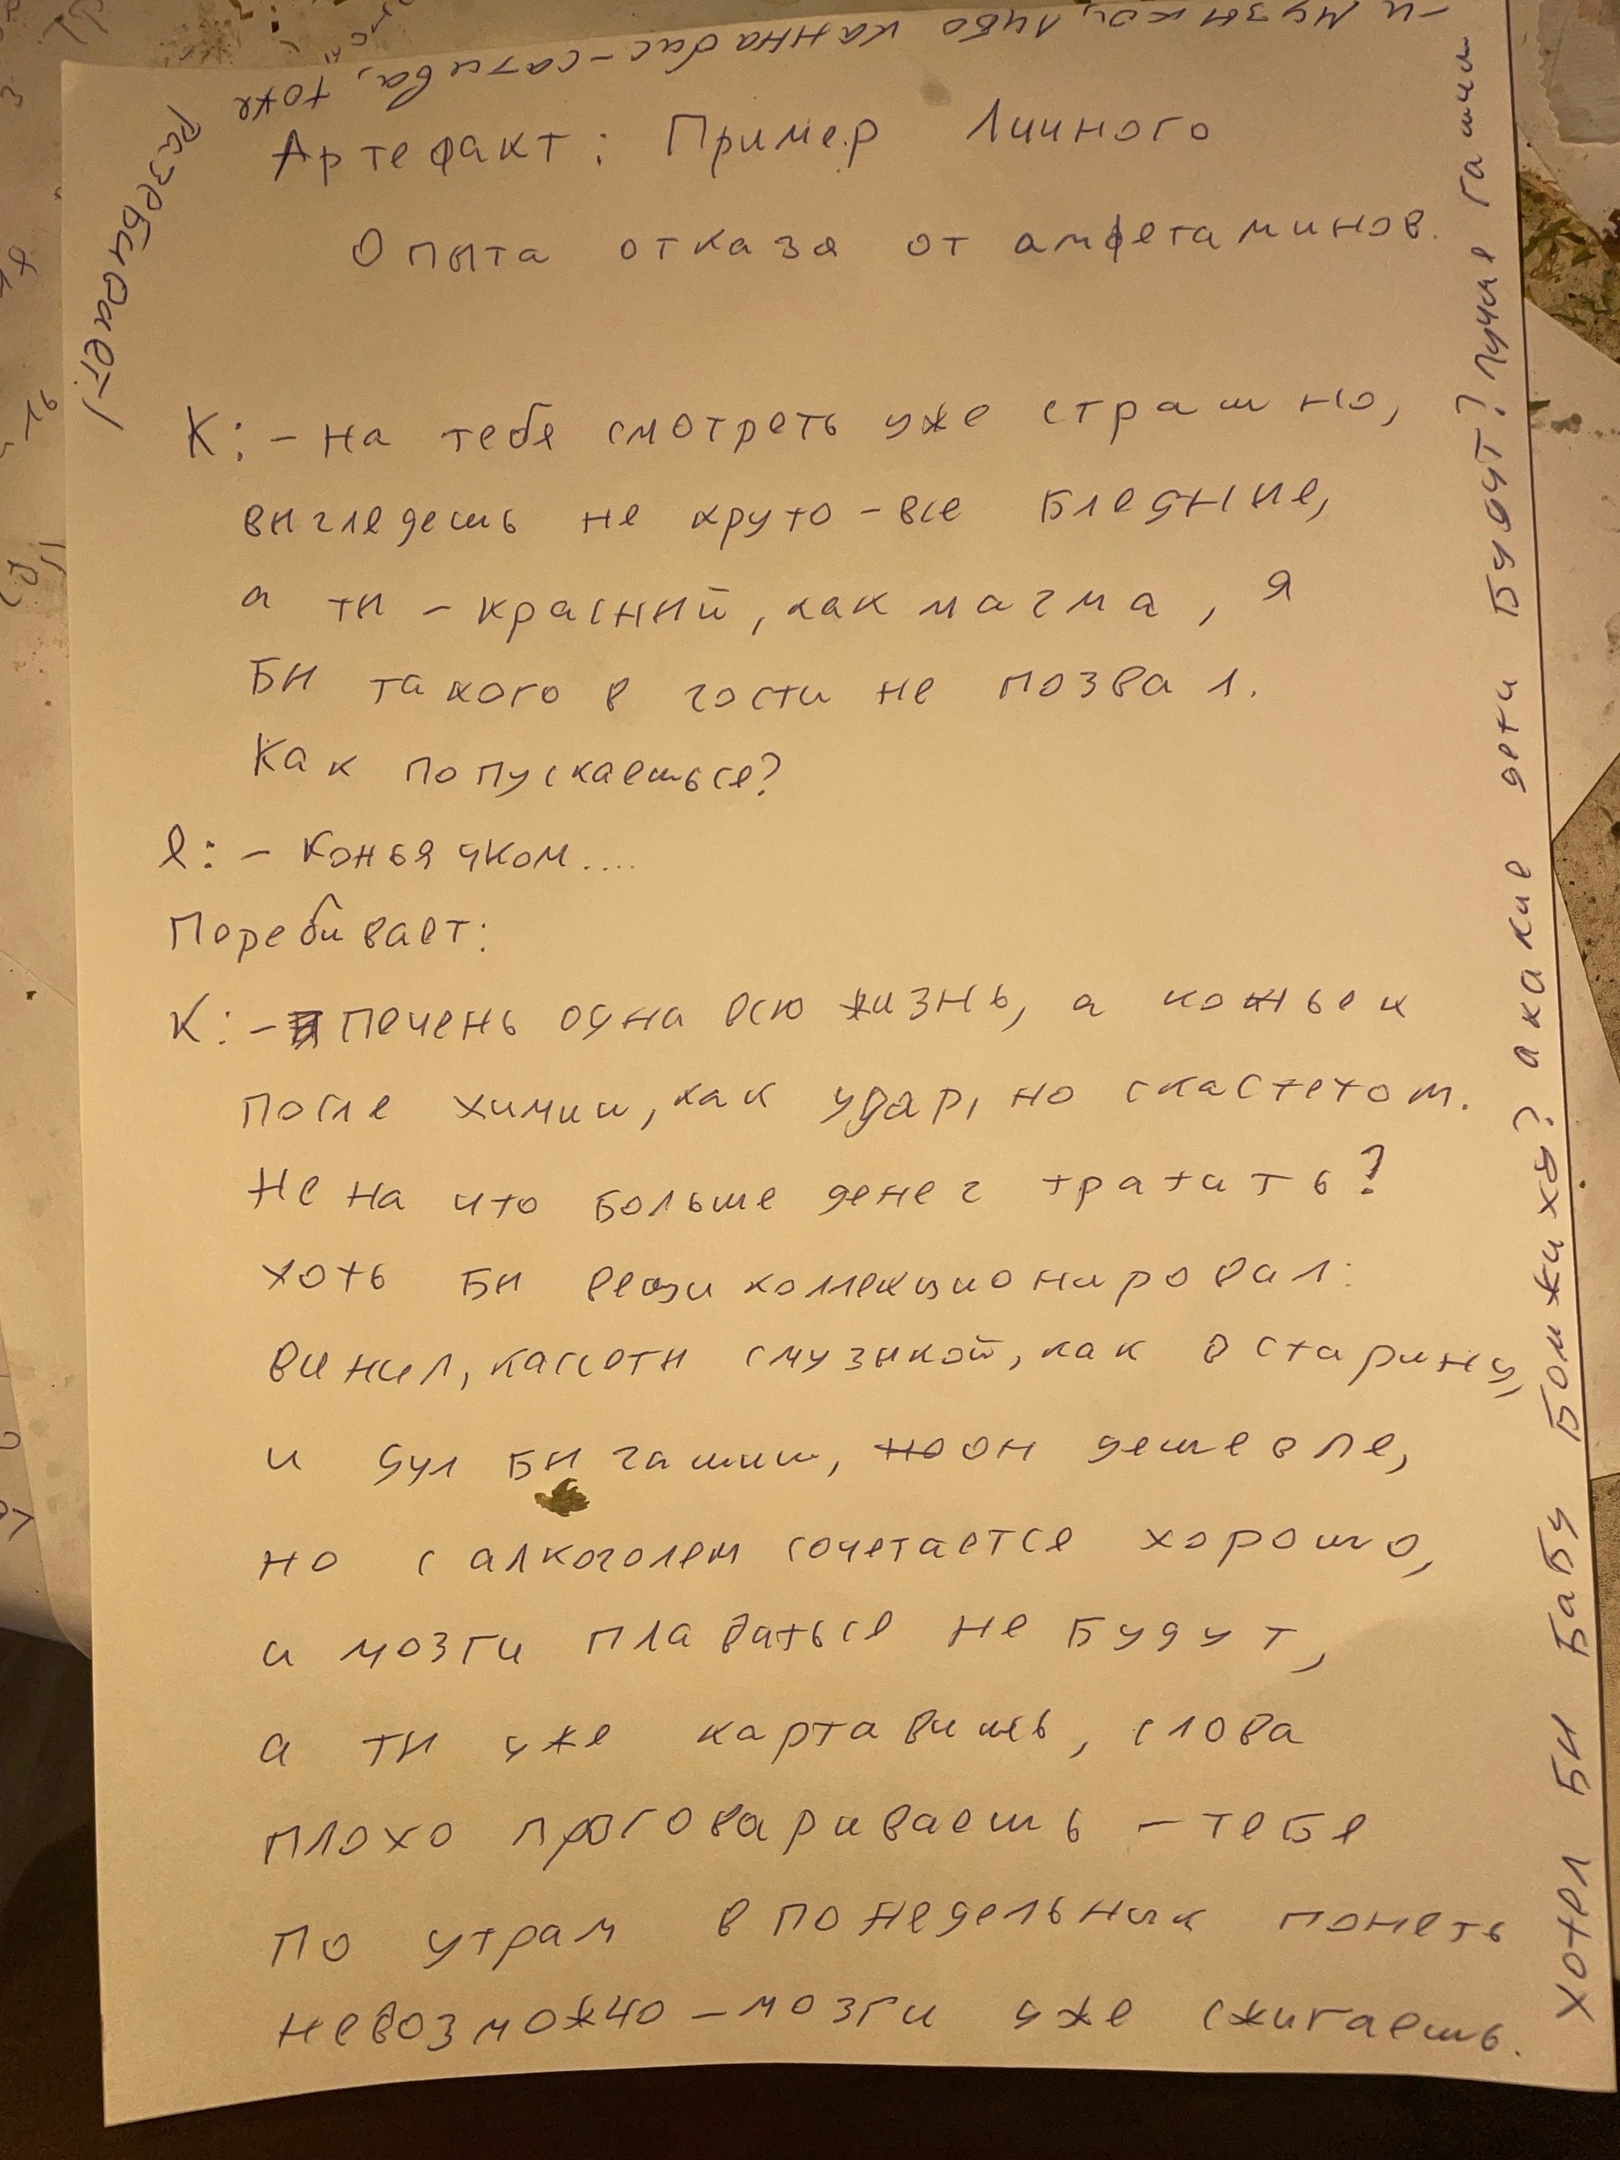 Артефакт: Пример Личного
Опыта отказа от амфетаминов.
К: - на тебя смотреть уже страшно,
выгледешь не круто - все бледные,
а ты - красный, как магма, я
бы такого в гости не позвал.
Как попускаешься?
Я: - коньячком....
Перебивает:
К: - печень одна всю жизнь, а коньек
после химии, как удар, но скастетом.
Не на что больше денег тратить?
хоть бы вещи коллекционировал:
винил, кассеты смузыкой, как в старину,
и дул бы гашиш, но он дешевле,
но с алкоголем сочетается хорошо,
и мозги плавиться не будут,
а ты уже картавишь, слова
плохо проговариваешь - тебя
по утрам в понедельник понеть
невозможно - мозги уже сжигаешь.
хотел бы бабу бомжиху? а какие дети будут? Лучше гашиш
- и музыкой, либо каннабис-сатива, тоже
разбирает!